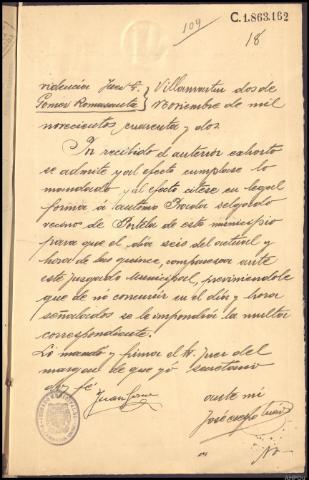 109
C.1.863.162
18
Villamartin dos de
noviembre de mil
novecientos cuarenta y dos
Por recibido el anterior exhorto
se admite y al efecto cumplase lo
mandado y al efecto citese en legal
forma á
vecino de Portela de este municipio
para que el día seis del actual y
hora de las quince, comparezca ante
este juzgado municipal, previniendole
que de no concurrir en el día y hora
señalados se le impondrá la multa
correspondiente.
Lo mandó y firma el Sr. Juez del
margen de que yo secretario
doy fé
ante mi
Juan
José